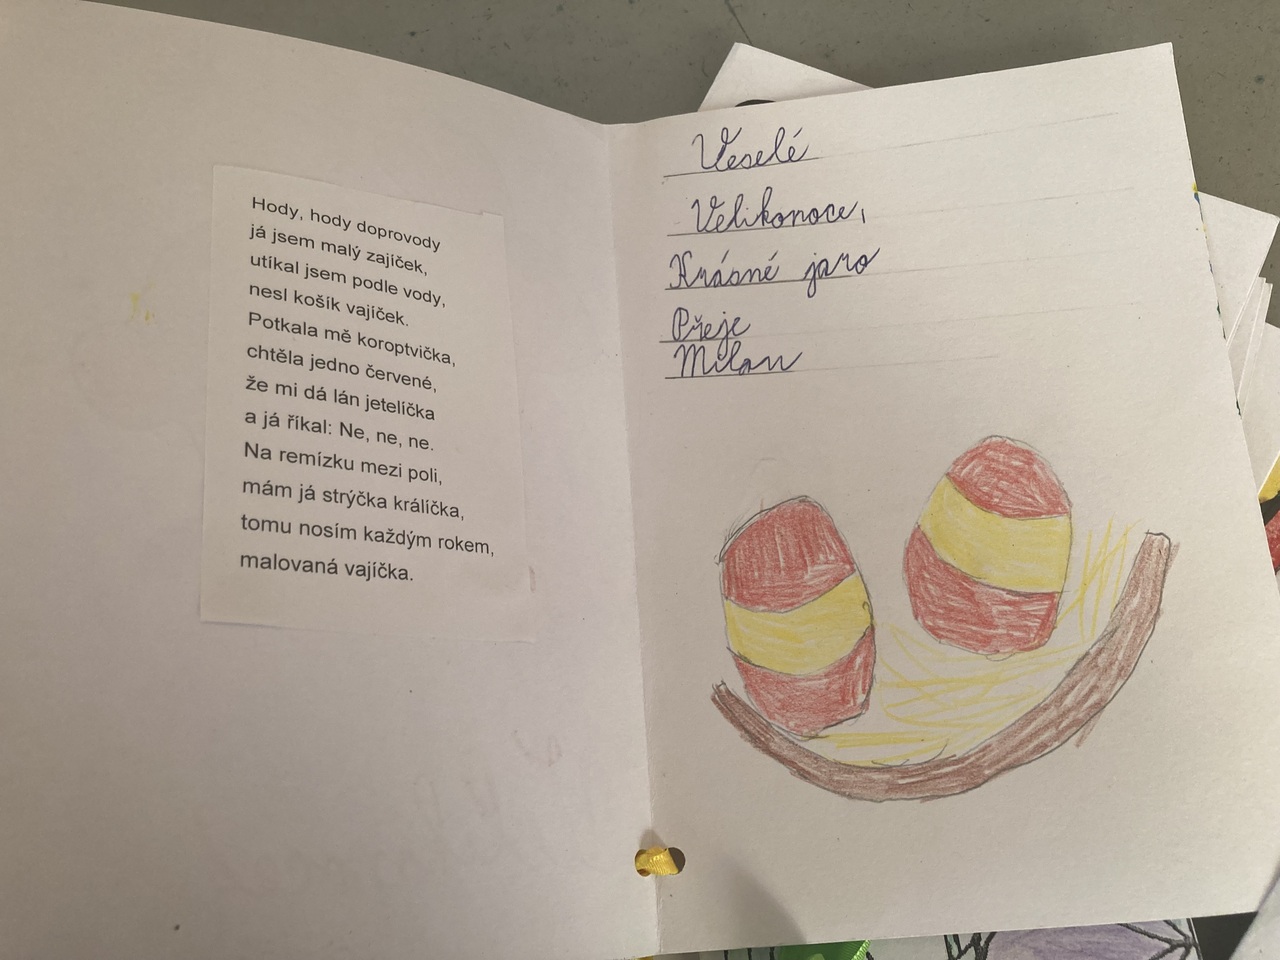 Hody, hody doprovody
já jsem malý zajíček,
utíkal jsem podle vody,
nesl košík vajíček.
Potkala mě koroptvička,
chtěla jedno červené,
že mi dá lán jetelíčka
a já říkal: Ne, ne, ne.
Na remízku mezi poli,
mám já strýčka králíčka,
tomu nosím každým rokem,
malovaná vajíčka.
Veselé
Velikonoce,
Krásné jaro
Přeje
Milan